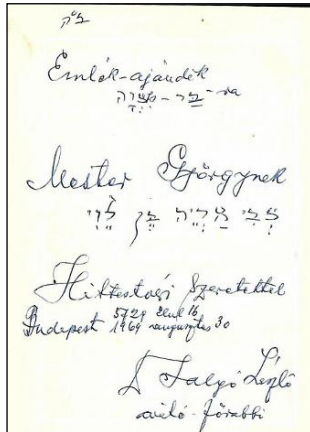 ב״ה
Emlék-ajándék
בַּר-מִצְוָה-ra
Mester Györgynek
צְבִי אַרְיֵה בֶּן לֵוִי
Hittestvéri Szeretettel
5729 elul 16
Budapest 1969 augusztus 30
Salgó László
avató-főrabbi